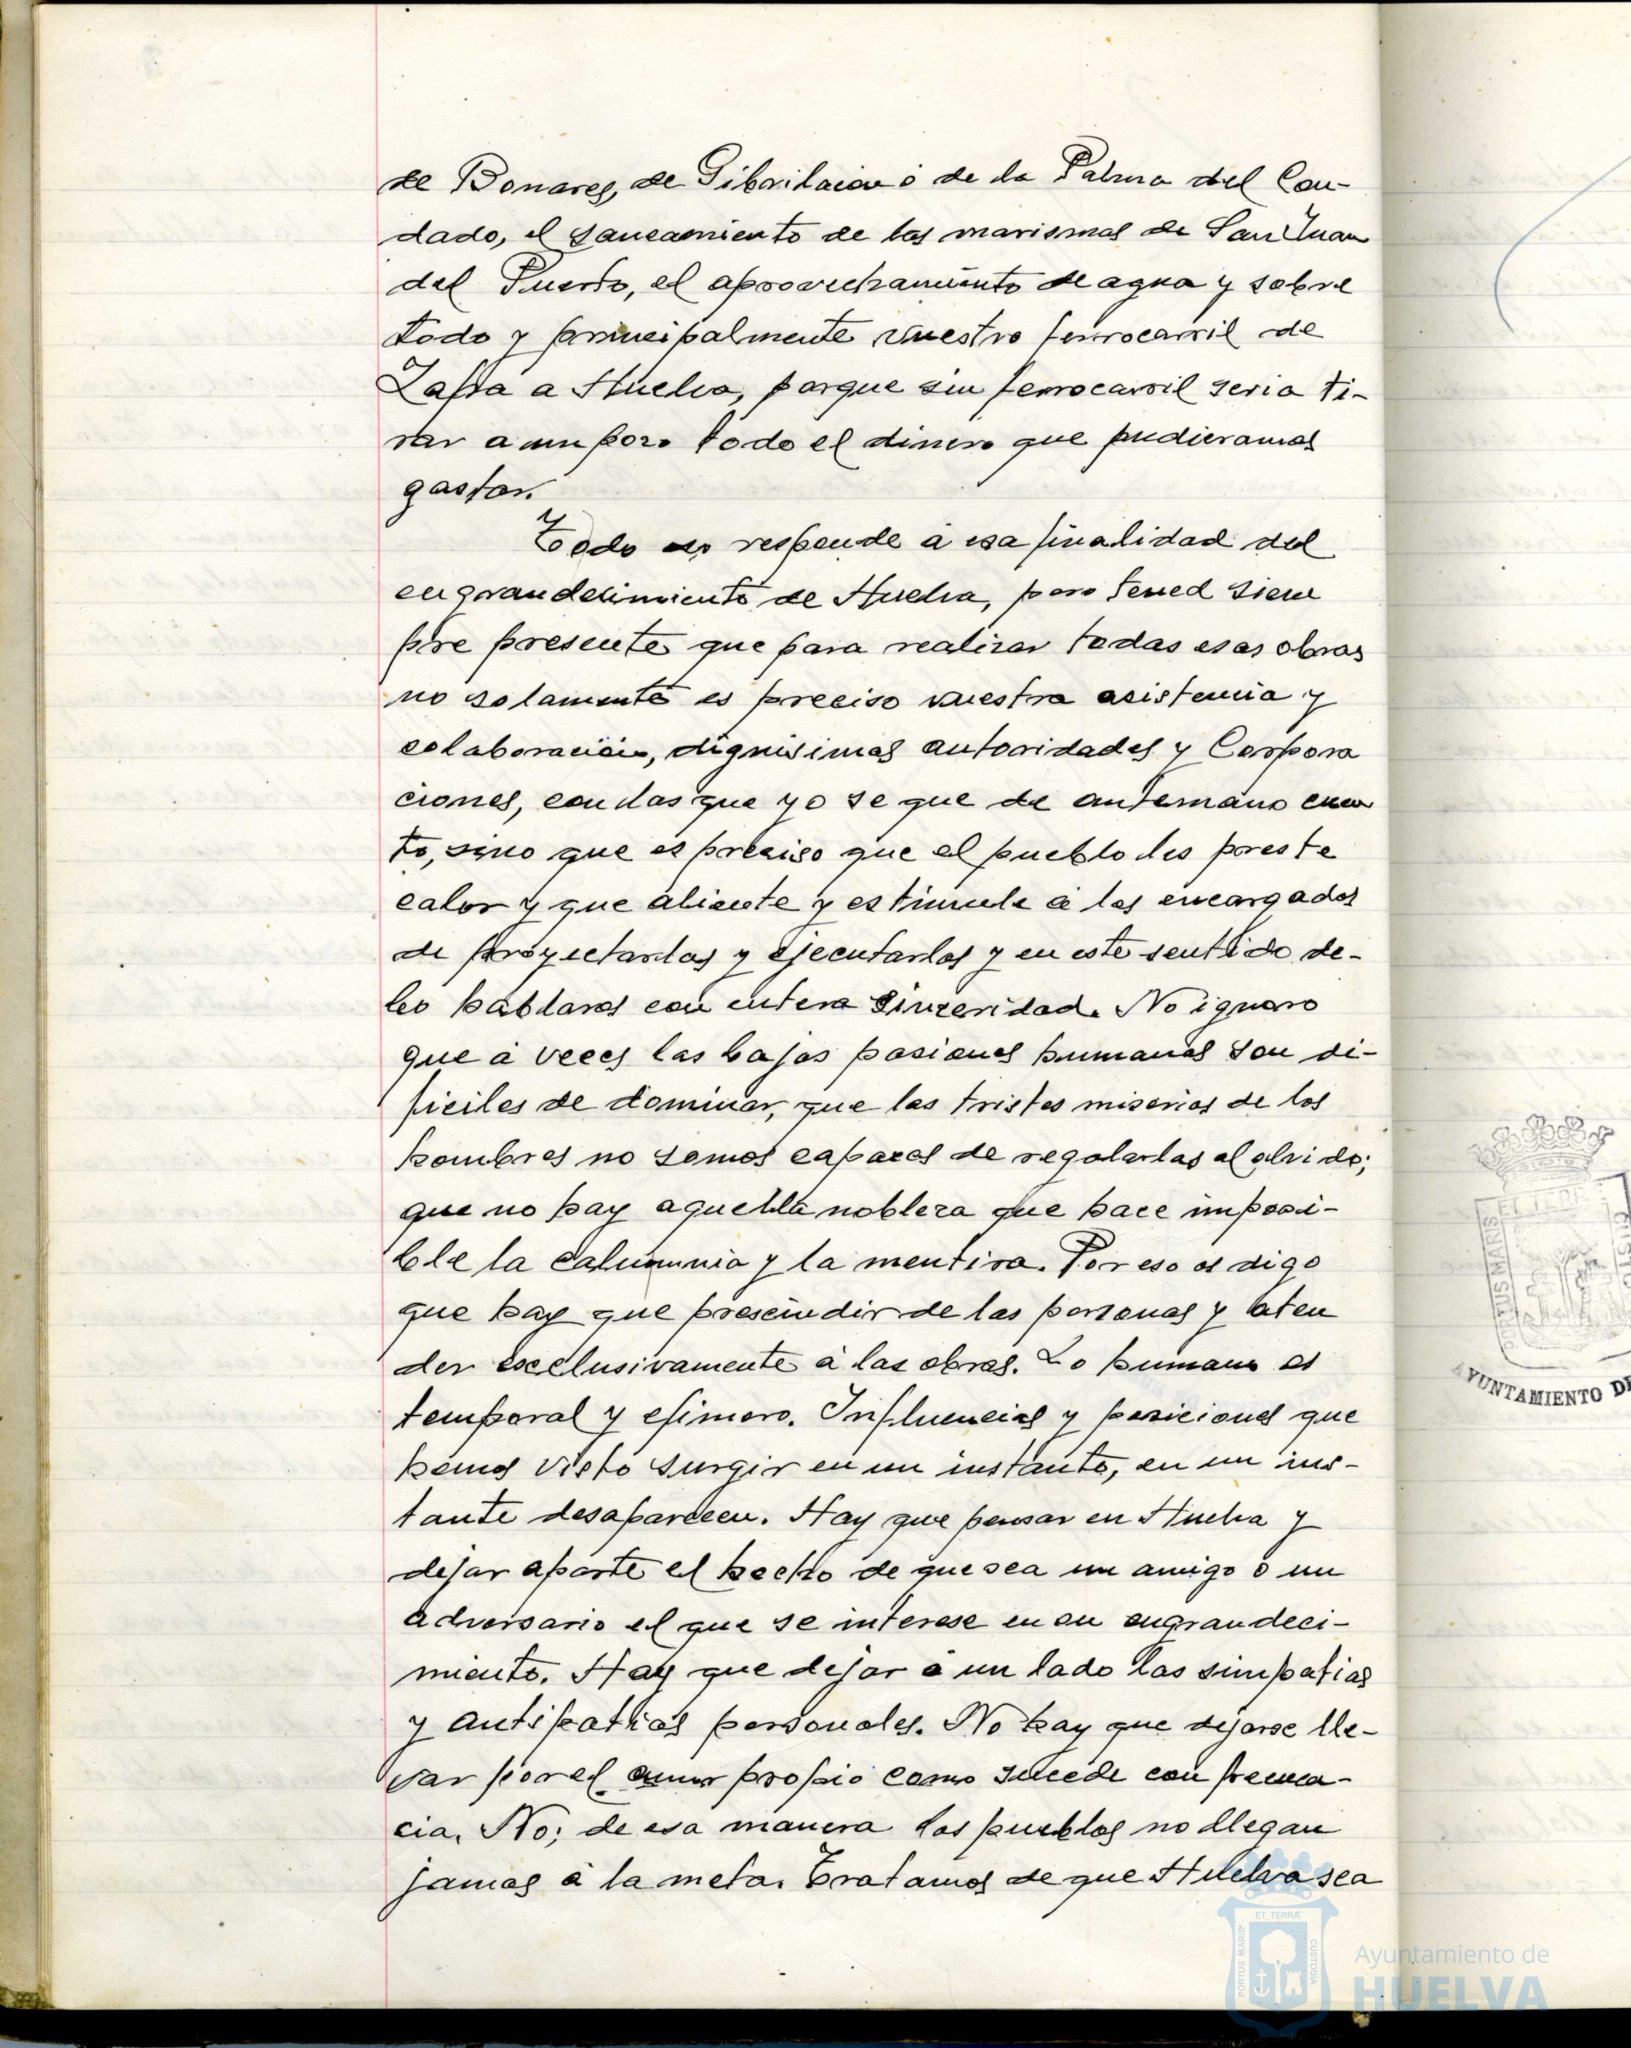 de Bonares, de Gibraleon ó de la Palma del Con-
dado, el saneamiento de las marismas de San Juan
del Puerto, el aprovechamiento de agua y sobre
todo y principalmente vuestro ferrocarril de
Zafra a Huelva, porque sin ferrocarril seria ti-
rar a un pozo todo el dinero que pudieramos
gastar.
Todo eso responde á esa finalidad del
engrandecimiento de Huelva, pero tened siem
pre presente que para realizar todas esas obras
no solamente es preciso vuestra asistencia y
colaboración, dignisimas autoridades y Corpora
ciones, con las que yo se que de antemano cuen
to, sino que es preciso que el pueblo les preste
calor y que aliente y estimule á los encargados
de proyectarlas y ejecutarlas y en este sentido de-
bo hablaros con entera sinceridad. No ignoro
que á veces las bajas pasiones humanas son di-
ficiles de dominar, que las tristes miserias de los
hombres no somos capaces de regalarlas al olvido;
que no hay aquella nobleza que hace imposi-
ble la calumnia y la mentira. Por eso os digo
que hay que prescindir de las personas y aten
der esclusivamente á las obras. Lo humano es
temporal y efimero. Influencias y posiciones que
hemos visto surgir en un instante, en un ins-
tante desaparecen. Hay que pensar en Huelva y
dejar aparte el hecho de que sea un amigo ó un
adversario el que se interese en su engrandeci-
miento. Hay que dejar á un lado las simpatias
y antipatias personales. No hay que dejarse lle-
var por el amor propio como sucede con frecuen-
cia. No; de esa manera los pueblos no llegan
jamas á la meta. Tratamos de que Huelva sea
AYUNTAMIENTO DE
PORTUS MARIS
ET TERRÆ
CUSTODIA
Ayuntamiento de
HUELVA